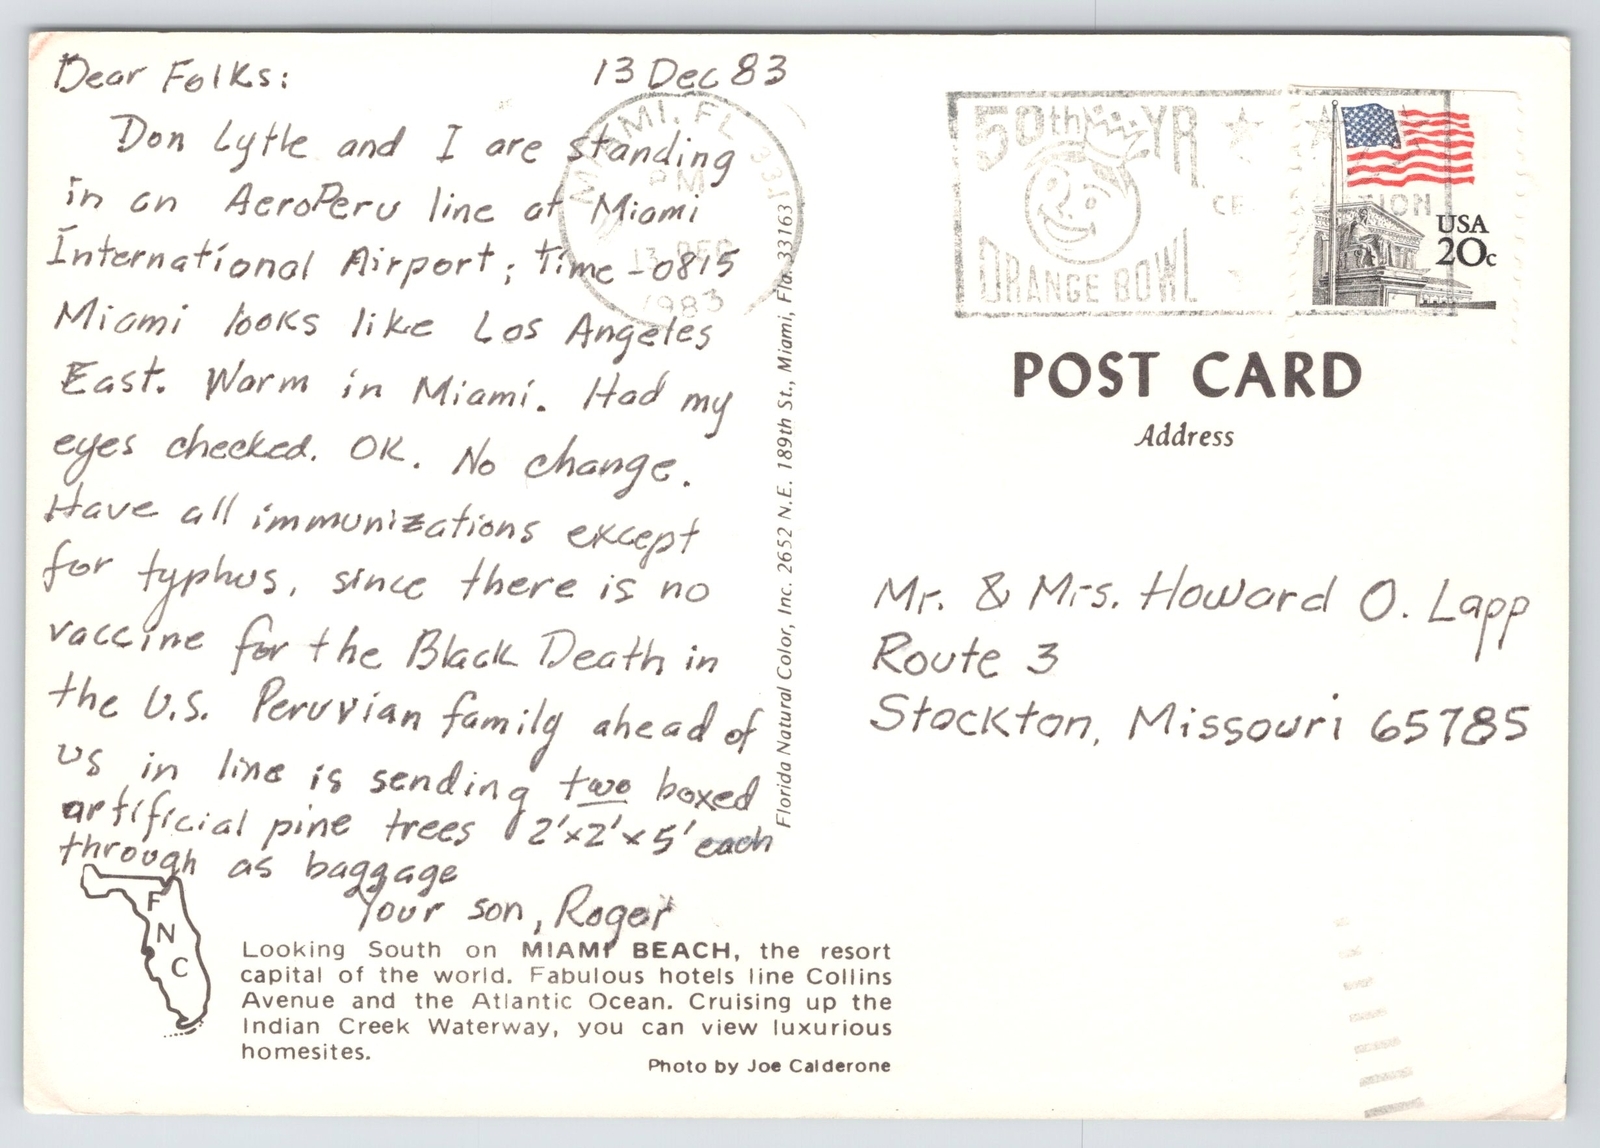 Dear Folks: 13 Dec 83
Don Lytle and I are standing
in an AeroPeru line at Miami
International Airport; time - 0815
Miami looks like Los Angeles
East. Warm in Miami. Had my
eyes checked. OK. No change.
Have all immunizations except
for typhus, since there is no
vaccine for the Black Death in
the U.S. Peruvian family ahead of
us in line is sending two boxed
artificial pine trees 2'x2'x5' each
through as baggage
Your son, Roger
F
N
C
Looking South on MIAMI BEACH, the resort
capital of the world. Fabulous hotels line Collins
Avenue and the Atlantic Ocean. Cruising up the
Indian Creek Waterway, you can view luxurious
homesites.
Photo by Joe Calderone
Florida Natural Color, Inc. 2652 N.E. 189th St., Miami, Fla. 33163
MIAMI, FL 331
PM
13 DEC
1983
50th YR
ORANGE BOWL
USA
20c
POST CARD
Address
Mr. & Mrs. Howard O. Lapp
Route 3
Stockton, Missouri 65785